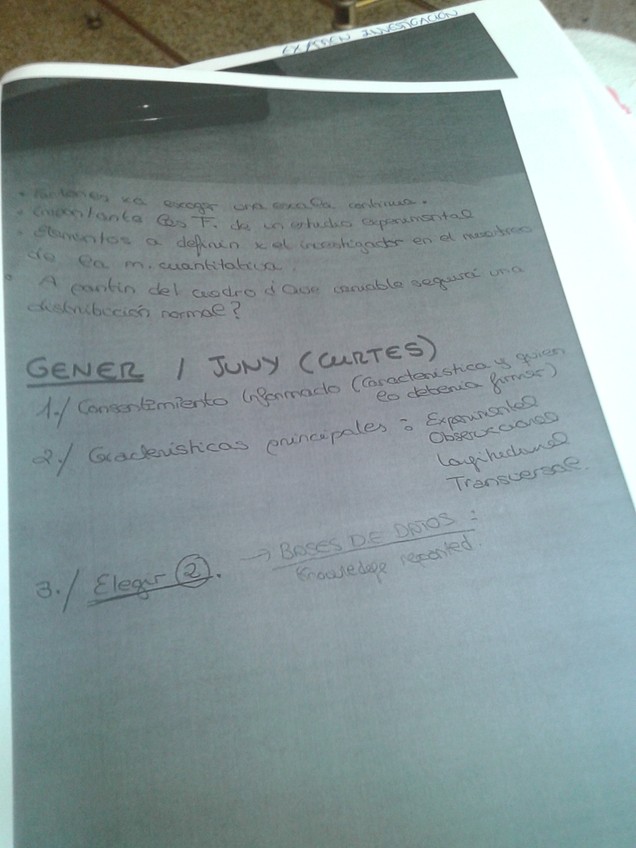 EXAMEN INVESTIGACION
• Factores xa escoger una escala continua.
• las F. de un estudio experimental
• Elementos a definir x el investigador en el muestreo
de la m. cuantitativa.
• A partir del cuadro d que variable seguirá una
distribución normal?
GENER / JUNY (CURTES)
1./ Consentimiento Informado (Característica y quien
lo deberia firmar)
2./ Características principales : Experimental
Observacional
Longitudinal
Transversal.
3./ Elegir 2. → BASES DE DATOS :
Knowledge